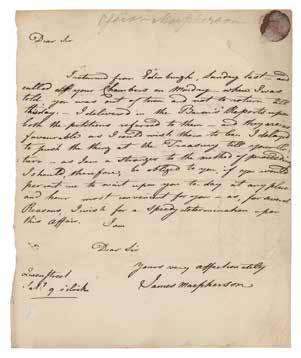 Ossian Macpherson
Dear Sir
I returned from Edinburgh, Sunday last — and
called at your Chambers on Monday — where I was
told you was out of town and not to return till
this day. I delivered in the Baron's Reports upon
both the petitions referred to them — and they are as
favourable as I could wish them to be. I delayed
to push the thing at the Treasury till your Re
turn — as I am a stranger to the method of proceeding
I should, therefore, be obliged to you, if you would
permit me to wait upon you to day at any place
and hour most convenient for you — as, for several
Reasons, I wish for a Speedy determination upon
this affair. I am
Dear Sir
Yours very affectionately
James Macpherson
Queen Street
Satʸ. 9 o'clock